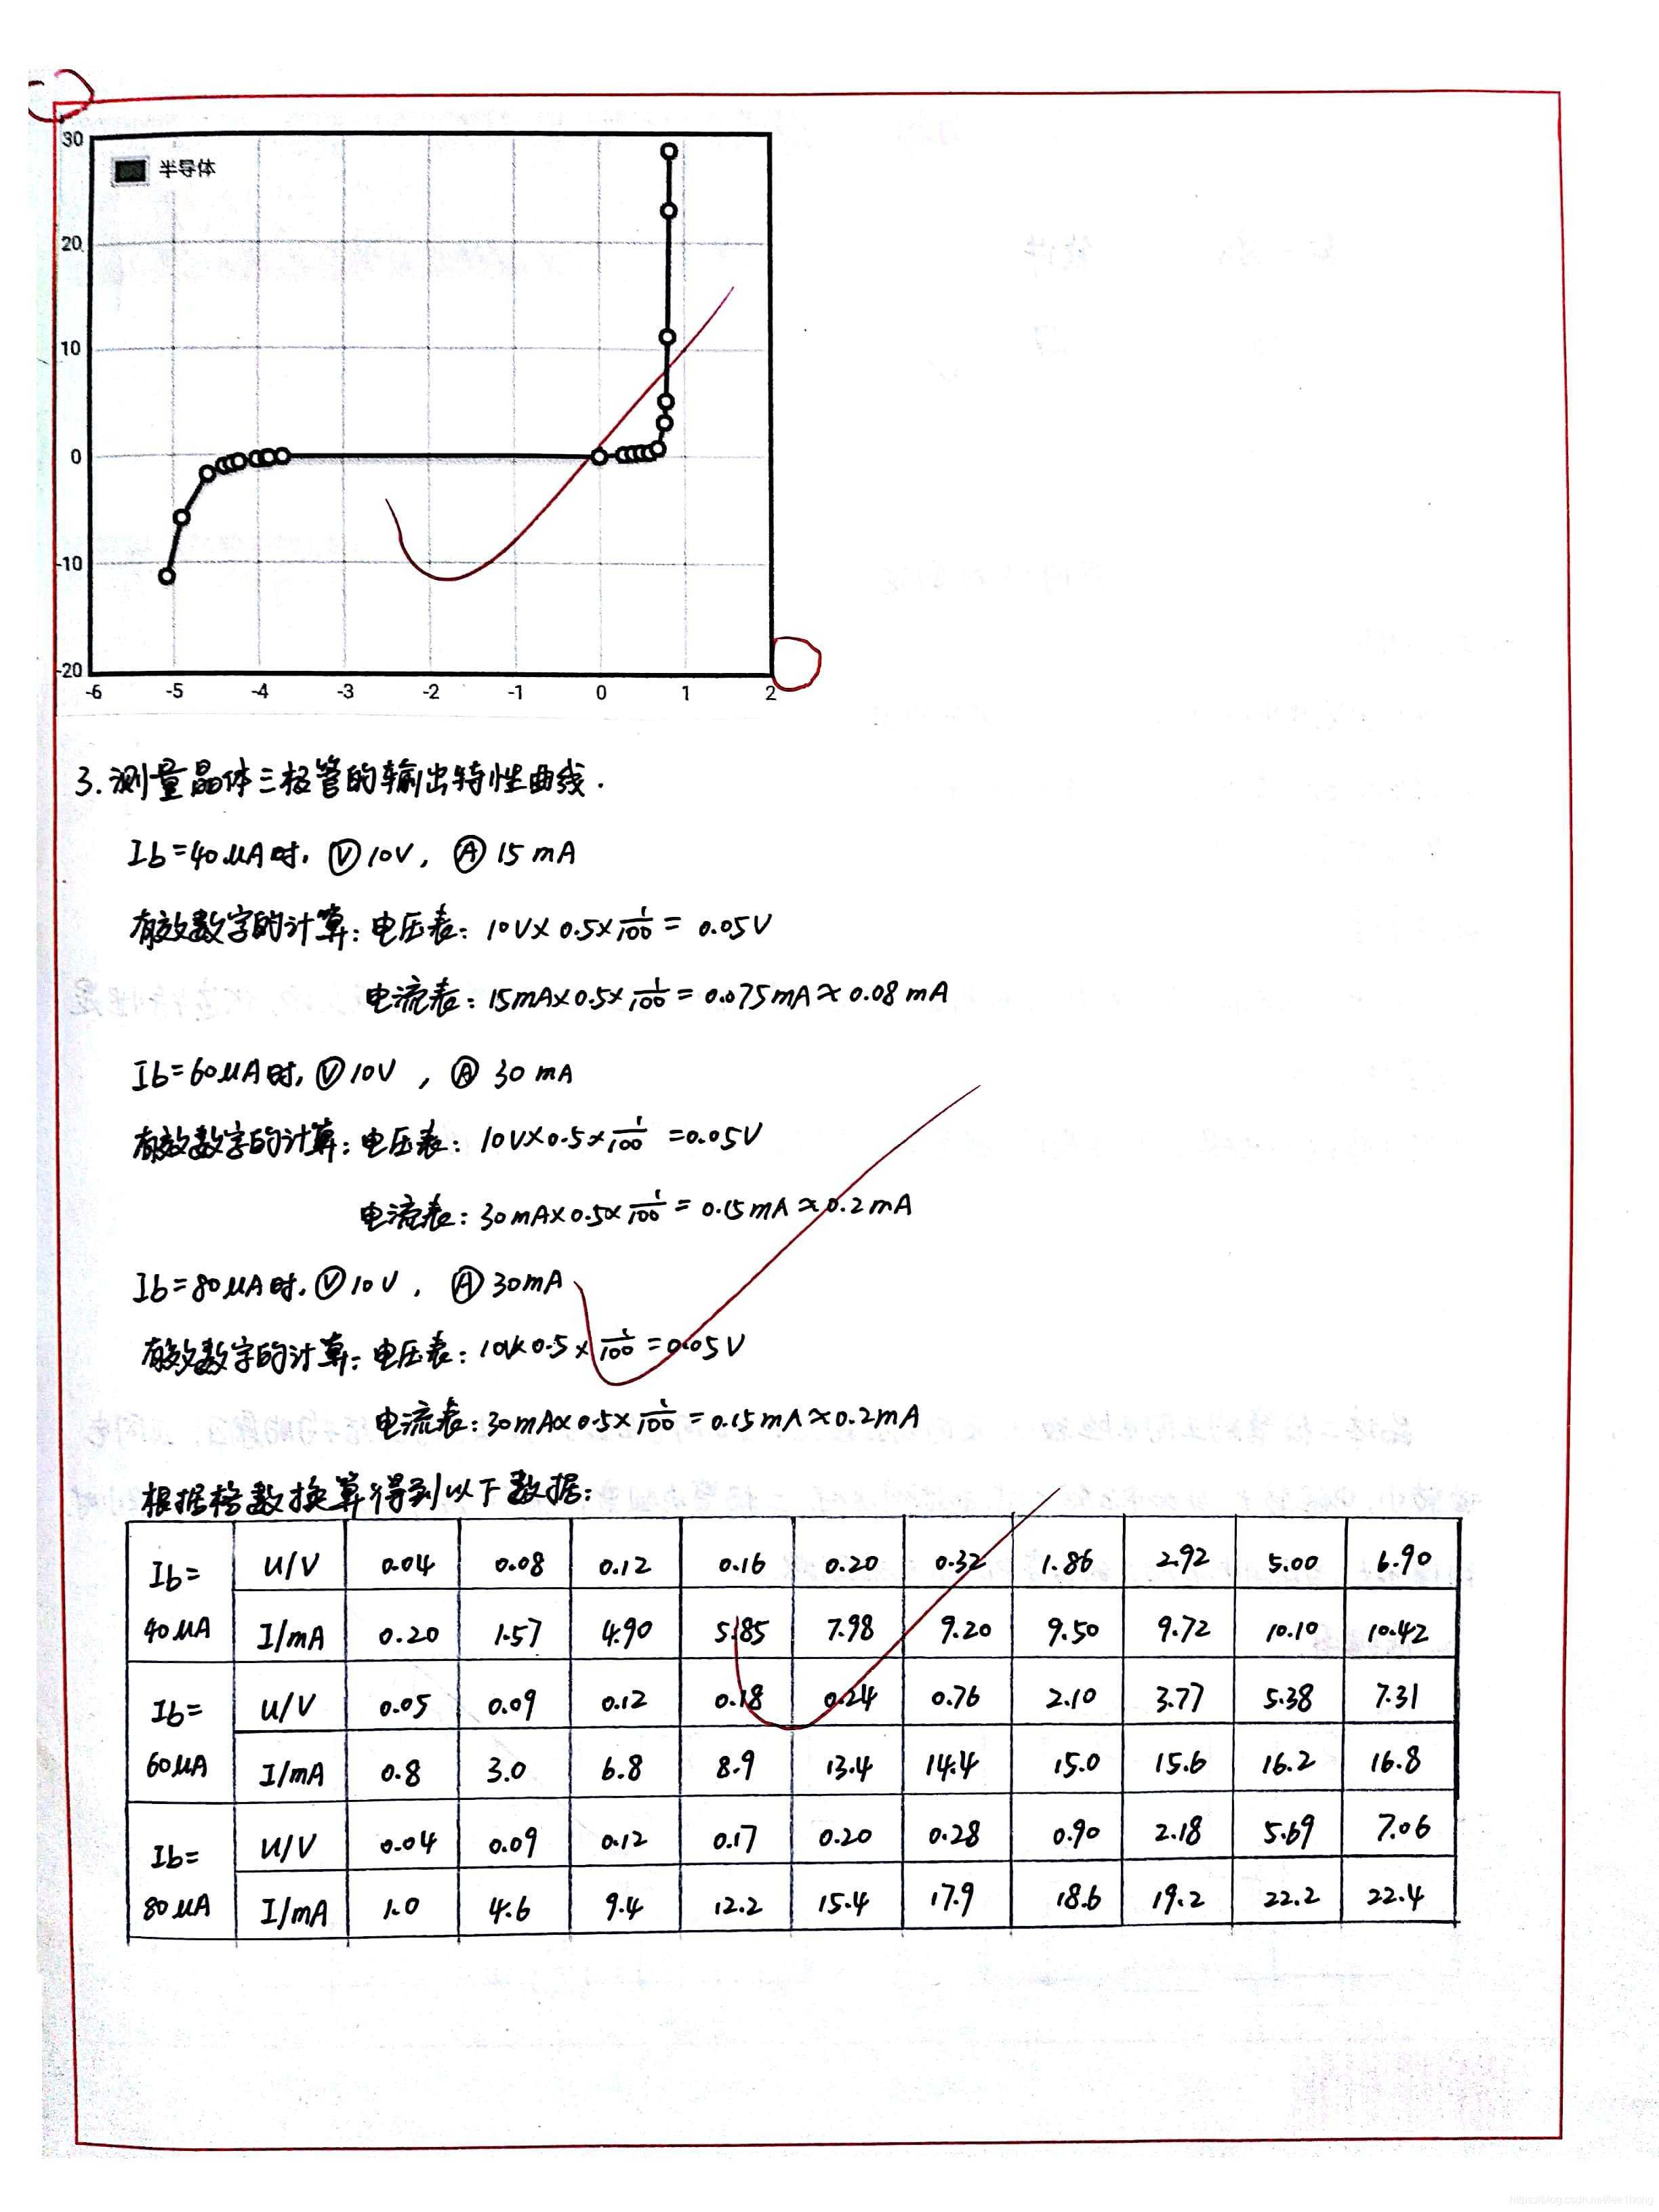 30
半导体
20
10
0
-10
-20
-6 -5 -4 -3 -2 -1 0 1 2
3.测量晶体三极管的输出特性曲线.
Ib=40μA时. Ⓥ10V, Ⓐ 15mA
有效数字的计算: 电压表: 10V×0.5×1/100= 0.05V
电流表: 15mA×0.5×1/100= 0.075mA≈0.08mA
Ib=60μA时, Ⓥ10V , Ⓐ 30mA
有效数字的计算: 电压表: 10V×0.5×1/100 =0.05V
电流表: 30mA×0.5×1/100= 0.15mA≈0.2mA
Ib=80μA时. Ⓥ10V, Ⓐ30mA
有效数字的计算: 电压表: 10V×0.5×1/100=0.05V
电流表: 30mA×0.5×1/100=0.15mA≈0.2mA
根据格数换算得到以下数据:
Ib= U/V 0.04 0.08 0.12 0.16 0.20 0.32 1.86 2.92 5.00 6.90
40μA I/mA 0.20 1.57 4.90 5.85 7.98 9.20 9.50 9.72 10.10 10.42
Ib= U/V 0.05 0.09 0.12 0.18 0.24 0.76 2.10 3.77 5.38 7.31
60μA I/mA 0.8 3.0 6.8 8.9 13.4 14.4 15.0 15.6 16.2 16.8
Ib= U/V 0.04 0.09 0.12 0.17 0.20 0.28 0.90 2.18 5.69 7.06
80μA I/mA 1.0 4.6 9.4 12.2 15.4 17.9 18.6 19.2 22.2 22.4